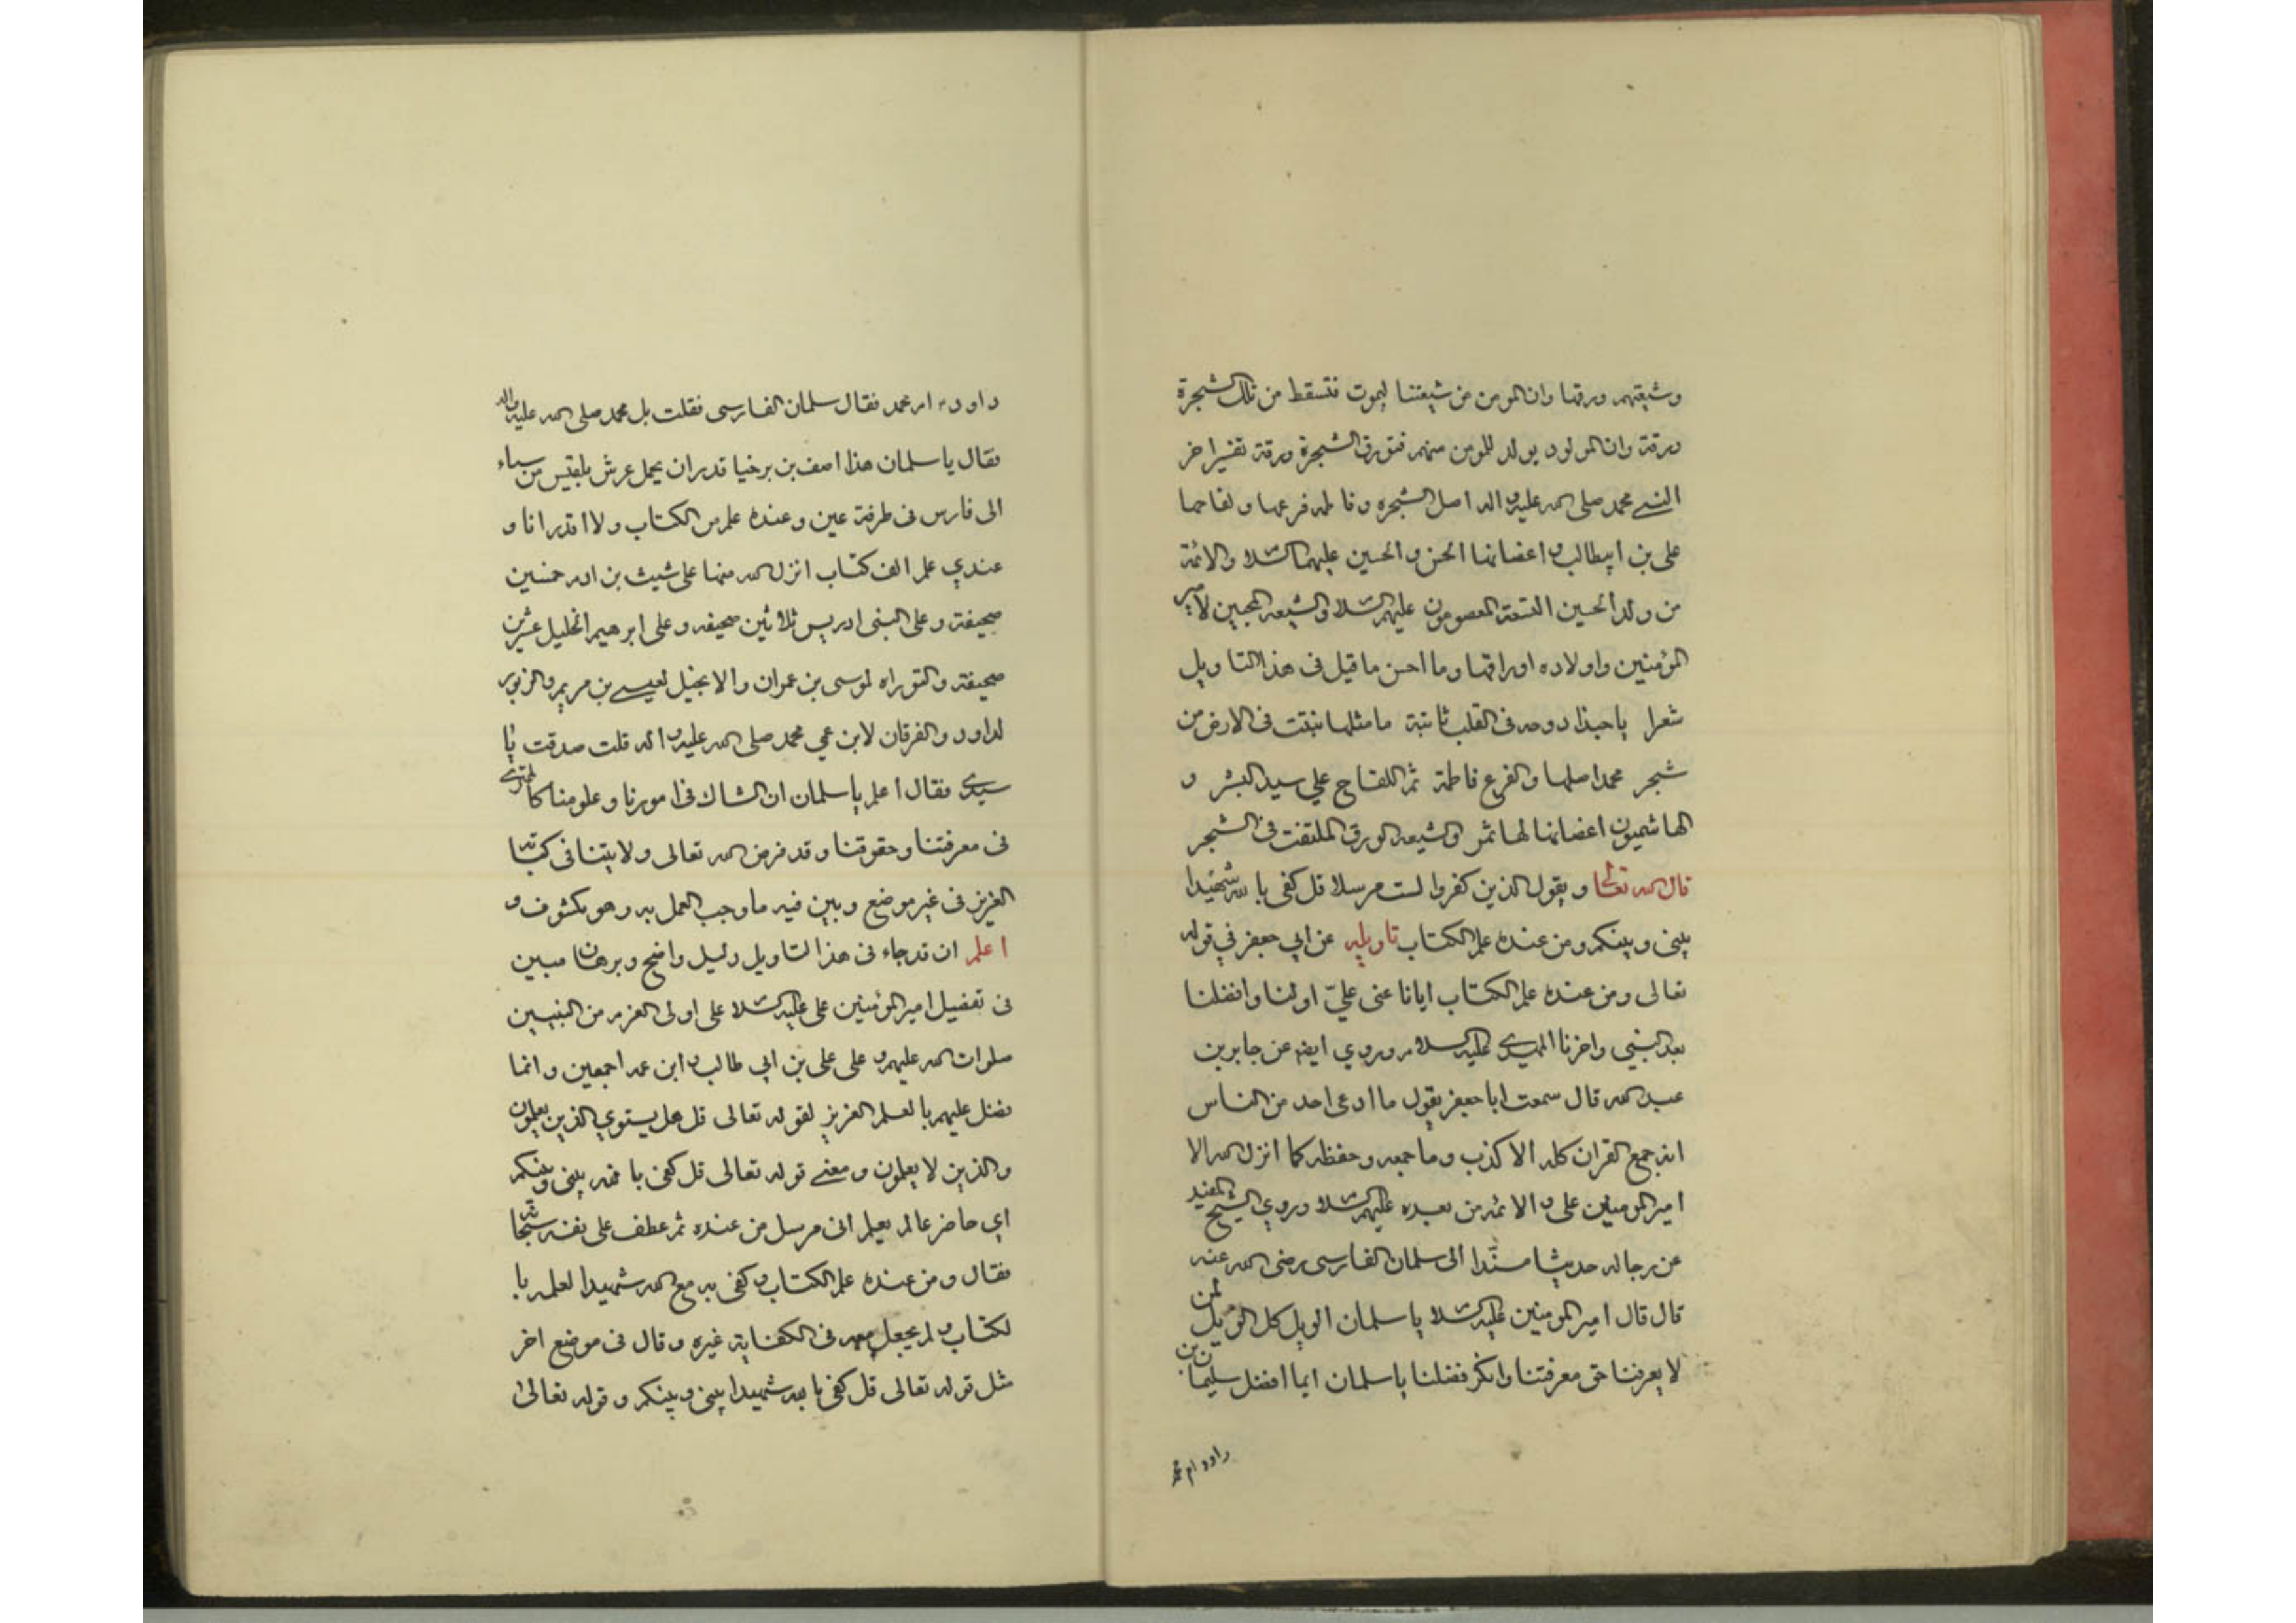 وشيعتهم ورقها وان المومن من شيعتنا ليموت فتسقط من تلك الشجرة
ورقة وان المولود يولد للمومن منهم فتورق الشجرة ورقة تفسير اخر
النبي محمد صلى الله عليه واله اصل الشجره وفاطمه فرعها ولقاحها
على بن ابيطالب واغصانها الحسن والحسين عليهما السلام والائمة
من ولد الحسين التسعة المعصومون عليهم السلام والشيعه المحبين لامير
المؤمنين واولاده اوراقها وما احسن ما قيل فى هذا التاويل
شعرا يا حبذا دوحه فى القلب ثابتة ما مثلها نبتت فى الارض من
شجر محمد اصلها والفرع فاطمة ثم اللقاح علي سيد البشر و
الهاشميون اغصانها لها ثمر والشيعه الورق الملتفت فى الشجر
قال الله تعالى ويقول الذين كفروا لست مرسلا قل كفى بالله شهيدا
بينى وبينكم ومن عنده علم الكتاب تاويله عن ابي جعفر في قوله
تعالى ومن عنده علم الكتاب ايانا عنى عليّ اولنا وافضلنا
بعد النبي واخرنا المهدي عليه السلام وروي ايضا عن جابر بن
عبد الله قال سمعت ابا جعفر يقول ما ادعى احد من الناس
انه جمع القران كله الا كذب وما جمعه وحفظه كما انزل الله الا
امير المومنين على والائمه من بعده عليهم السلام وروي الشيخ المفيد
عن رجاله حديثا مسندا الى سلمان الفارسى رضى الله عنه
قال قال امير المومنين عليه السلام يا سلمان الويل كل الويل لمن
لا يعرفنا حق معرفتنا وانكر فضلنا يا سلمان ايما افضل سليمان بن
داود ام محمد
داود ام محمد فقال سلمان الفارسى فقلت بل محمد صلى الله عليه واله
فقال يا سلمان هذا اصف بن برخيا قدر ان يحمل عرش بلقيس من سباء
الى فارس فى طرفة عين وعنده علم من الكتاب ولا اقدر انا و
عندي علم الف كتاب انزل الله منها على شيث بن ادم خمسين
صحيفة وعلى النبى ادريس ثلاثين صحيفه وعلى ابرهيم الخليل عشرين
صحيفة والتوراه لموسى بن عمران والانجيل لعيسى بن مريم والزبور
لداود والفرقان لابن عمي محمد صلى الله عليه واله قلت صدقت يا
سيدي فقال اعلم يا سلمان ان الشاك فى امورنا وعلومنا كالممترى
فى معرفتنا وحقوقنا وقد فرض الله تعالى ولايتنا فى كتابه
العزيز فى غير موضع وبين فيه ما وجب العمل به وهو مكشوف و
اعلم ان قد جاء فى هذا التاويل دليل واضح وبرهان مبين
فى تفضيل امير المؤمنين على عليه السلام على اولى العزم من النبيين
صلوات الله عليهم و على على بن ابي طالب وابن عمه اجمعين وانما
فضل عليهم بالعلم العزيز لقوله تعالى قل هل يستوي الذين يعلمون
والذين لا يعلمون ومعنى قوله تعالى قل كفى بالله بينى وبينكم
اي حاضر عالم يعلم انى مرسل من عنده ثم عطف على نفسه
فقال ومن عنده علم الكتاب وكفى به مع الله شهيدا لعلمه با
لكتاب ولم يجعل معه فى الكفاية غيره وقال فى موضع اخر
مثل قوله تعالى قل كفى بالله شهيدا بينى وبينكم وقوله تعالى